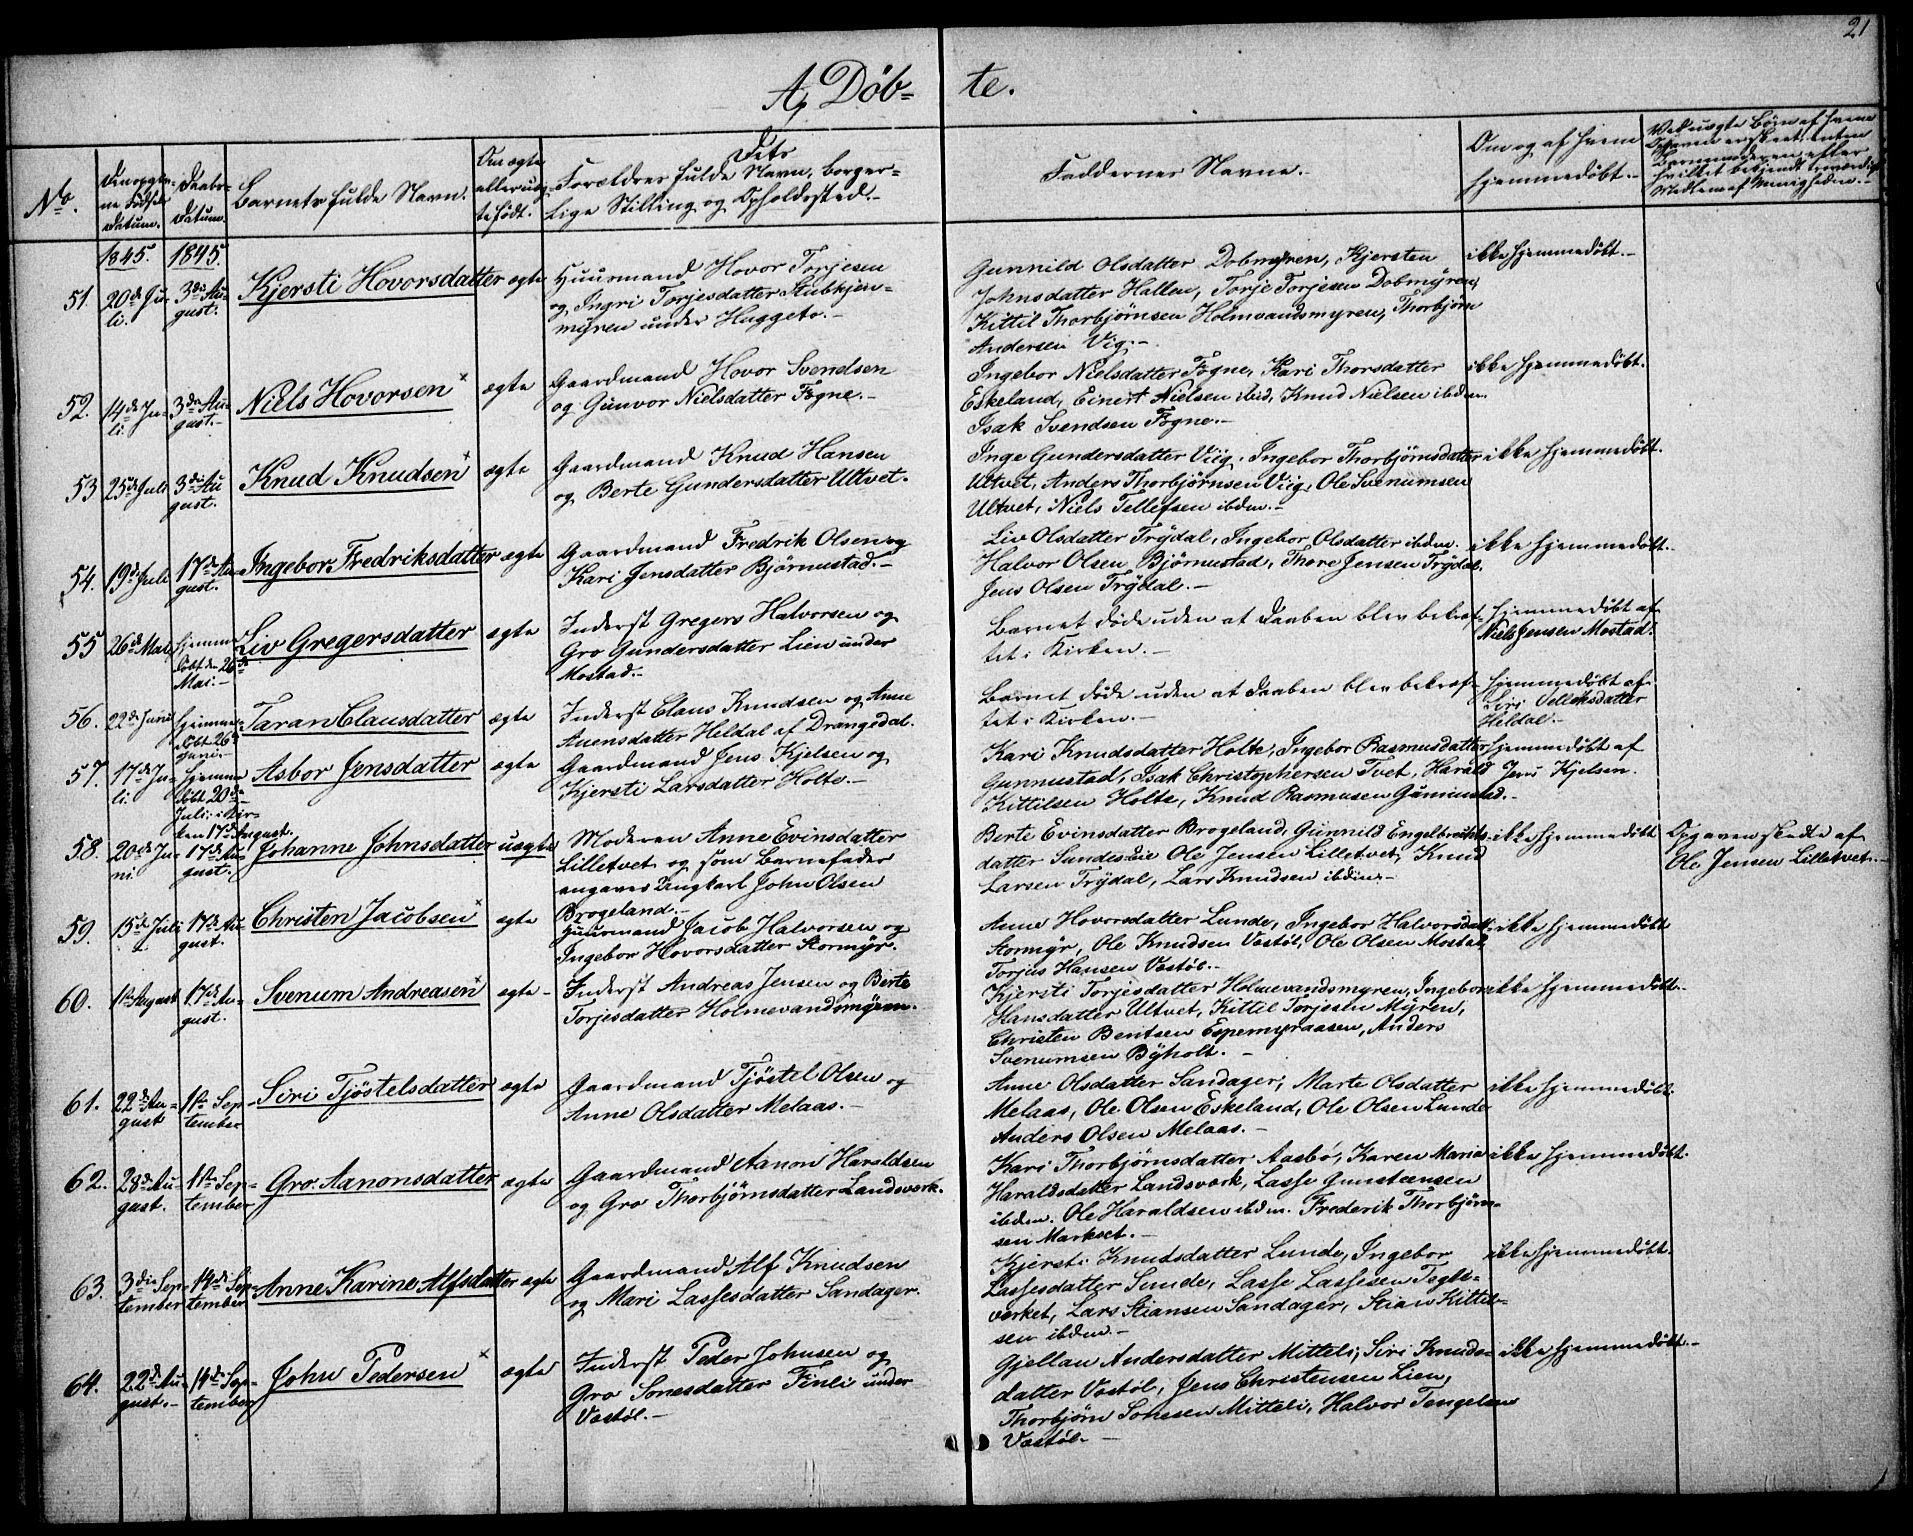 21
A, Döb=
te.
No.
Barnets fulde Navn.
Om ægte
eller uæg=
te født.
Dets
Forældres fulde Navn, borger=
lige Stilling og Opholdssted.-
Faddernes Navne.-
Om og af hvem
hjemmedøbt.-
1845.
1845.
51.
20de Ju-
li.
3die Au-
gust.
Kjersti Hovorsdatter
ægte
Huusmand Hovor Torjesen
og Ingri Torjesdatter Stubkjen-
myren under Heggeto.-
Gunnild Olsdatter Dobmyren, Kjersten
Johnsdatter Hallen, Torje Torjesen Dobmyren,
Kittil Thorbjørnsen Holmvandsmyren, Thorbjørn
Andersen Vig.-
ikke hjemmedøbt.-
52.
14de Ju-
li.
3die Au-
gust.-
Niels Hovorsen
ægte
Gaardmand Hovor Svendsen
og Gunvor Nielsdatter Fogne.-
Ingebor Nielsdatter Fogne, Kari Thorsdatter
Eskeland, Einert Nielsen ibid, Knud Nielsen ibdm.
Isak Svendsen Fogne.-
ikke hjemmedøbt.
53
25de Juli
3die Au
gust.
Knud Knudsen
ægte
Gaardmand Knud Hansen
og Berte Gundersdatter Ultvet.
Inge Gundersdatter Viig. Ingebor Thorbjørnsdatter
Ultvet, Anders Thorbjørnsen Viig, Ole Svenumsen
Ultvet, Niels Tellefsen ibdm.-
ikke hjemmedøbt.
54.
19de Juli
17de Au-
gust.
Ingebor Fredriksdatter
ægte
Gaardmand Fredrik Olsen og
Kari Jensdatter Björnustad.-
Liv Olsdatter Trydal, Ingebor Olsdatter ibdm.
Halvor Olsen Bjørnustad, Thore Jensen Trydal,
Jens Olsen Trydal.-
ikke hjemmedøbt.
55
26de Mai
hjemme
døbt den 26de
Mai.-
Liv Gregersdatter
ægte
Inderst Gregers Halvorsen og
Gro Gundersdatter Lien under
Mostad.-
Barnet døde uden at Daaben blev bekræf-
tet i Kirken.-
hjemmedøbt af
Niels Jensen Mostad.
56.
22de Juni
hjemme
døbt 26de
Juni.-
Taran Clausdatter
ægte
Inderst Claus Knudsen og Anne
Auensdatter Heldal af Drangedal.
Barnet døde uden at Daaben blev bekræf-
tet i Kirken.-
hjemmedøbt af
Siri
Heldal.-
57.
17de Ju-
li.
hjemme
døbt 20de
Juli; i Kir-
ken 17de August.
Asbor Jensdatter
ægte
Gaardmand Jens Kjelsen og
Kjersti Larsdatter Holte.-
Kari Knudsdatter Holte, Ingebor Rasmusdatter
Gunnustad, Isak Christophersen Tvet, Harald
Kittilsen Holte, Knud Rasmusen Gunnustad.-
hjemmedøbt af
Jens Kjelsen.
58.
20de Ju-
ni.
17de Au-
gust.
Johanne Johnsdatter
uægte
Moderen Anne Evinsdatter
Lilletvet og som Barnefader
angaves Ungkarl John Olsen
Brogeland.-
Berte Evinsdatter Brogeland, Gunnild Engelbrechts-
datter Ole Jensen Lilletvet, Knud
Larsen Trydal, Lars Knudsen ibdm.-
ikke hjemmedøbt
Opgaven skedte af
Ole Jensen Lilletvet.-
59.
15de Juli
17de Au-
gust.
Christen Jacobsen
ægte
Huusmand Jacob Halvorsen og
Ingebor Hovorsdatter Stormyr.
Anne Hovorsdatter Lunde, Ingebor Halvorsdatt.
Stormyr, Ole Knudsen Vastøl, Ole Olsen Mostad
Torjus Hansen Vastøl.-
ikke hjemmedøbt
60.
1ste August
17de Au-
gust.
Svenum Andreasen
ægte-
Inderst Andreas Jensen og Berte
Torjesdatter Holmevandsmyren.
Kjersti Torjesdatter Holmevandsmyren, Ingebor
Hansdatter Ultvet, Kittil Torjesen Myren,
Christen Bentsen Espemyraasen, Anders
Svenumsen Byholt.-
ikke hjemmedøbt.-
61.
22de Au-
gust
1ste Sep-
tember
Siri Tjöstelsdatter
ægte
Gaardmand Tjöstel Olsen og
Anne Olsdatter Melaas.-
Anne Olsdatter Sandager, Marte Olsdatter
Melaas, Ole Olsen Eskeland, Ole Olsen Lunde
Anders Olsen Melaas.-
ikke hjemmedøbt.
62.
28de Au-
gust.
1ste Sep-
tember
Gro Aanonsdatter
ægte
Gaardmand Aanon Haraldsen
og Gro Thorbjørnsdatter Landsverk.
Kari Thorbjørnsdatter Aasbø, Karen Maria
Haraldsdatter Landsverk, Lasse Gunsteensen
ibdm. Ole Haraldsen ibdm. Frederik Thorbjørn-
sen Markset.-
ikke hjemmedøbt.
63.
3die Sep-
tember
14de Sep-
tember
Anne Karine Alfsdatter
ægte
Gaardmand Alf Knudsen
og Mari Lassesdatter Sandager.
Kjersti Knudsdatter Lunde, Ingebor
Lassesdatter Sunde, Lasse Lassesen Tegle-
verket, Lars Stiansen Sandager, Stian Kittil-
sen ibdm.-
ikke hjemmedøbt.
64.
22de Au-
gust.-
14de Sep-
tember
John Pedersen
ægte
Inderst Peder Johnsen og
Gro Sonesdatter Finli under
Vastøl.-
Gjellau Andersdatter Mitteli, Siri Knuds-
datter Vastøl, Jens Christensen Lien,
Thorbjørn Sonesen Mitteli, Halvor Tengelsen
Vastøl.-
ikke hjemmedøbt.-